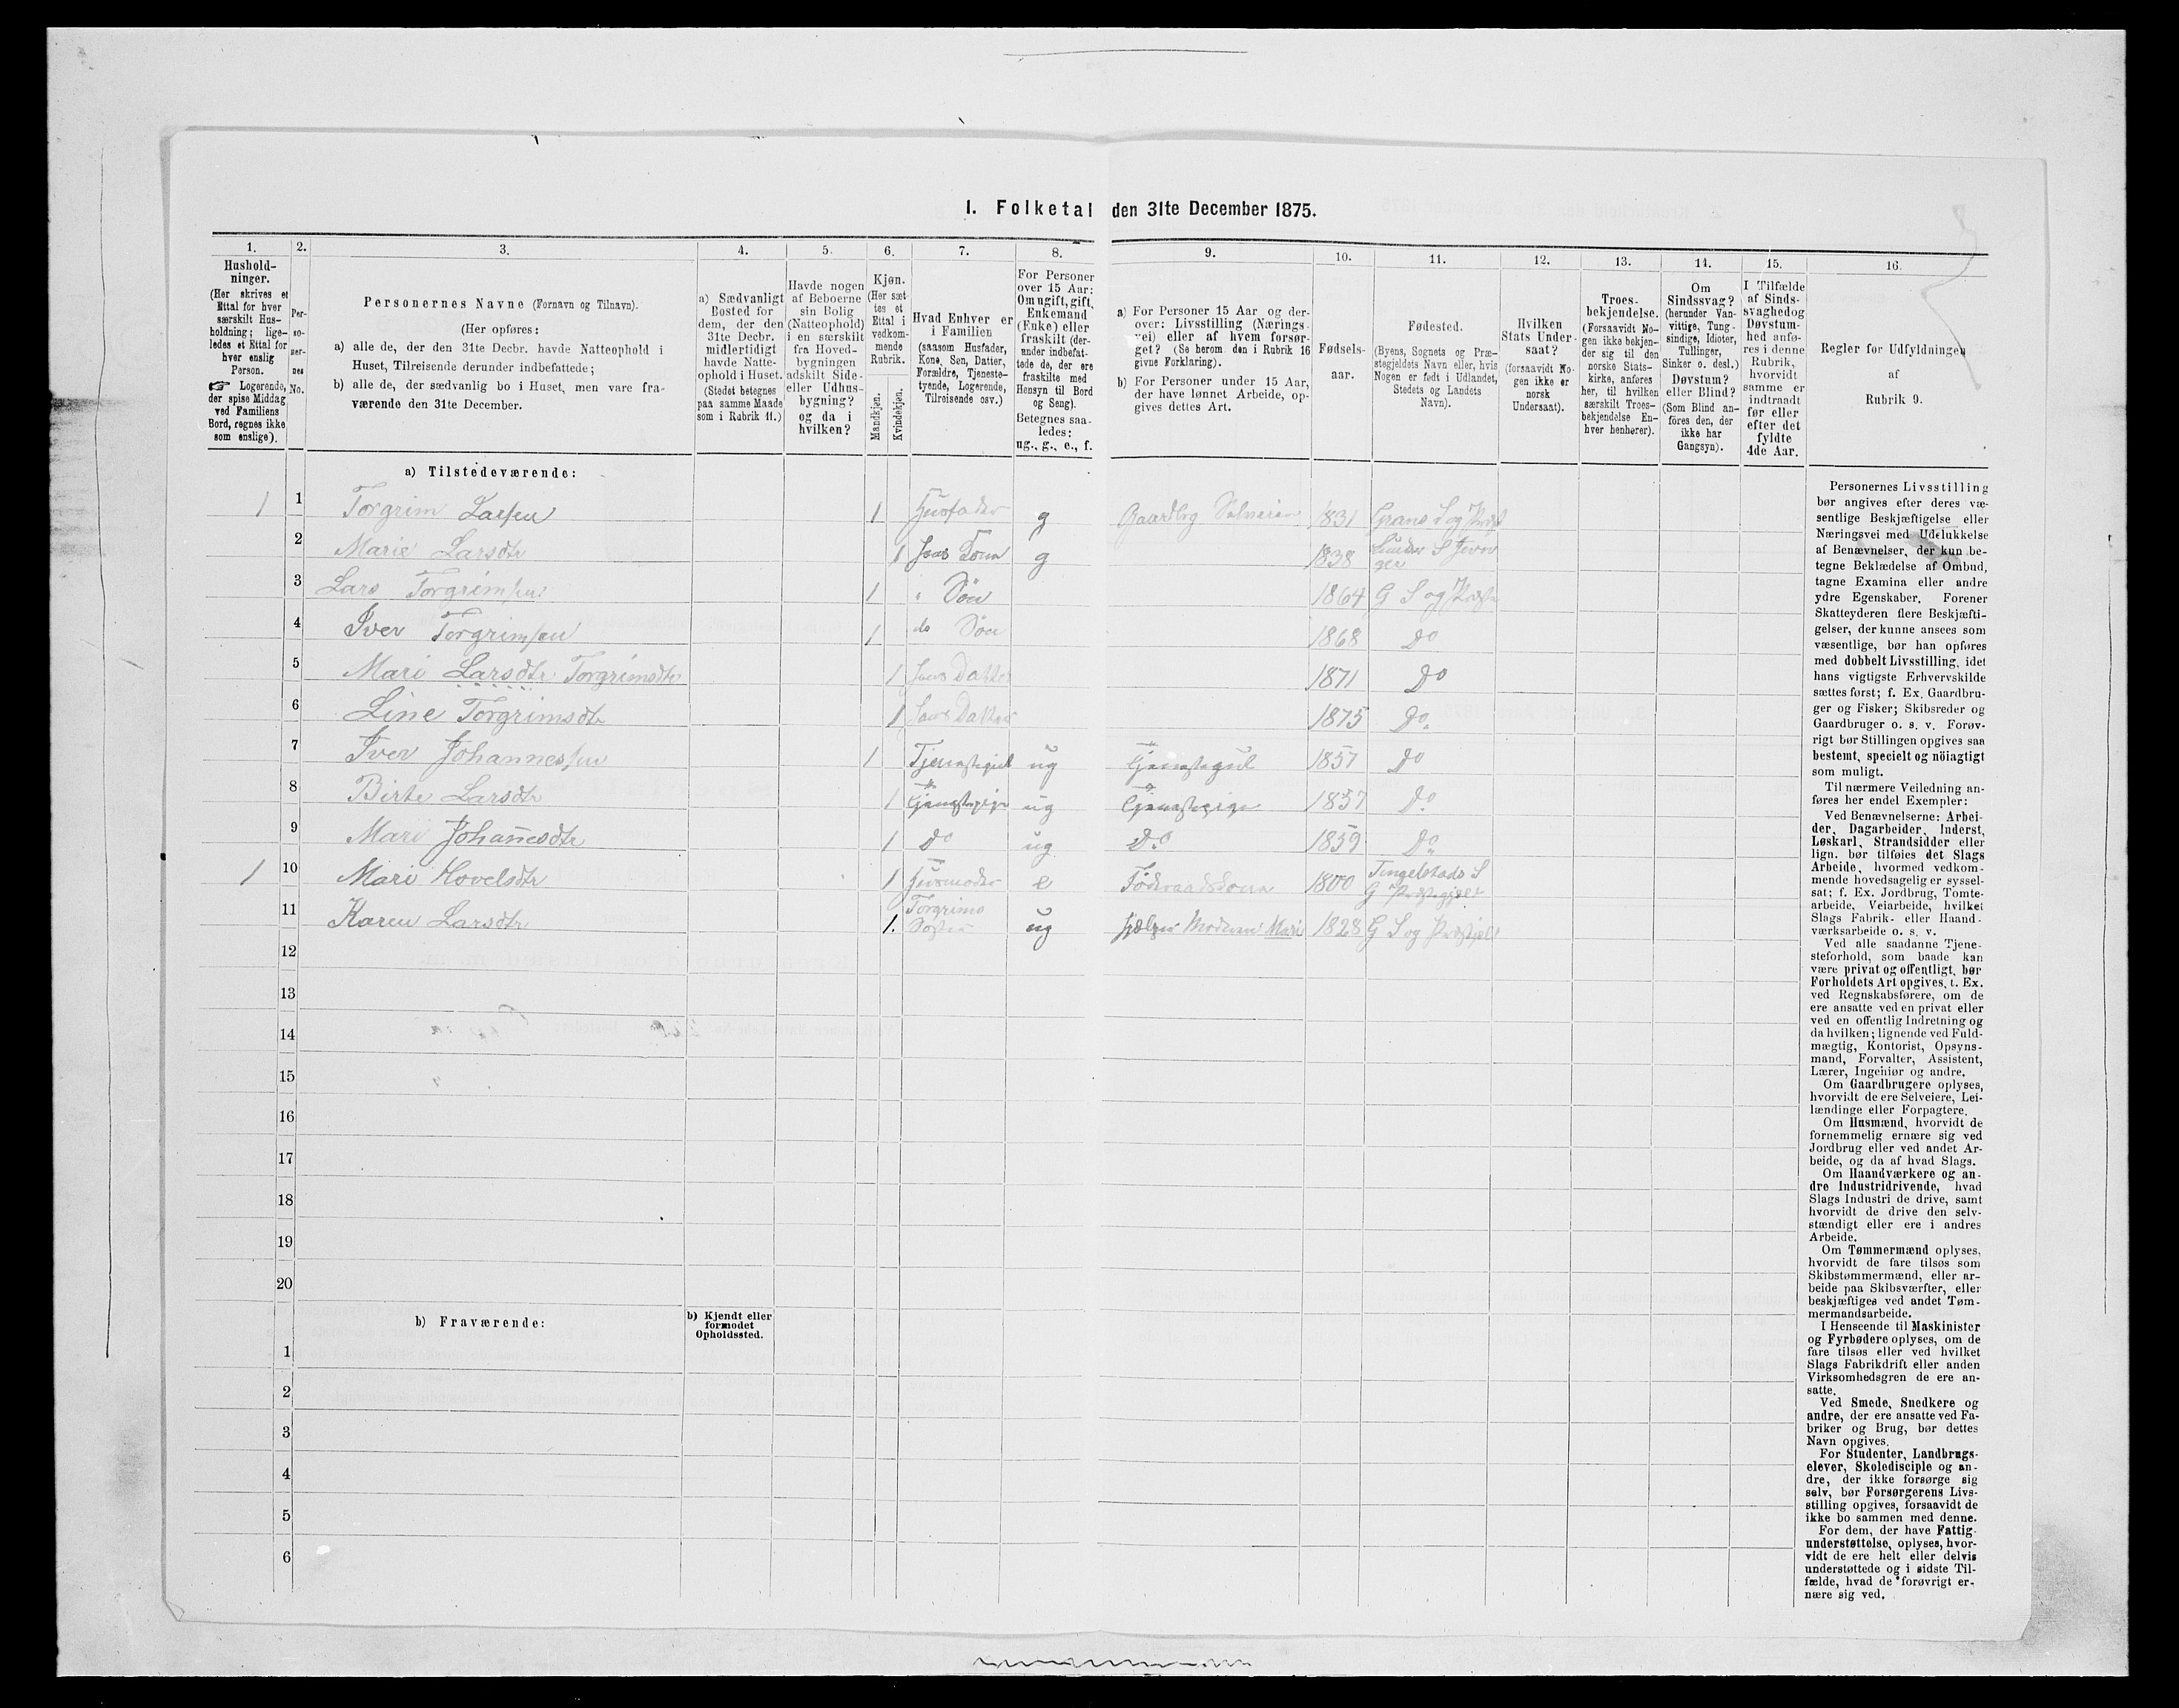 1. Folketal den 31te December 1875.
1.
Hushold-
ninger.
(Her skrives et
Ettal for hver
særskilt Hus-
holdning; lige-
ledes et Ettal for
hver enslig
Person.
☞ Logerende,
der spise Middag
ved Familiens
Bord, regnes ikke
som enslige).
2.
Per-
so-
ner-
nes
No.
3.
Personernes Navne (Fornavn og Tilnavn).
(Her opføres:
a) alle de, der den 31te Decbr. havde Natteophold i
Huset, Tilreisende derunder indbefattede;
b) alle de, der sædvanlig bo i Huset, men vare fra-
værende den 31te December.
4.
a) Sædvanligt
Bosted for
dem, der den
31te Decbr.
midlertidigt
havde Natte-
ophold i Huset.
(Stedet betegnes
paa samme Maade
som i Rubrik 11.)
5.
Havde nogen
af Beboerne
sin Bolig
(Natteophold)
i en særskilt
fra Hoved-
bygningen
adskilt Side-
eller Udhus-
bygning?
og da i
hvilken?
6.
Kjøn.
(Her sæt-
tes et
Ettal i
vedkom-
mende
Rubrik.
Mandkjøn.
Kvindekjøn.
7.
Hvad Enhver er
i Familien
(saasom Husfader,
Kone, Søn, Datter,
Forældre, Tjeneste-
tyende, Logerende,
Tilreisende osv.)
8.
For Personer
over 15 Aar:
Om ugift, gift,
Enkemand
(Enke) eller
fraskilt (der-
ander indbefat-
tede de, der ere
fraskilte med
Hensyn til Bord
og Seng).
Betegnes saa-
ledes:
ug., g., e., f.
9.
a) For Personer 15 Aar og der-
over: Livsstilling (Nærings-
vei) eller af hvem forsør-
get? (Se herom den i Rubrik 16
givne Forklaring).
b) For Personer under 15 Aar,
der have lønnet Arbeide, op-
gives dettes Art.
10.
Fødsels-
aar.
11.
Fødested.
(Byens, Sognets og Præ-
stegjeldets Navn eller, hvis
Nogen er født i Udlandet,
Stedets og Landets
Navn).
12.
Hvilken
Stats Under-
saat?
(forsaavidt No-
gen ikke er
norsk
Undersaat).
13.
Troes-
bekjendelse.
(Forsaavidt No-
gen ikke bekjen-
der sig til den
norske Stats-
kirke, anføres
her, til hvilken
særskilt Troes-
bekjendelse En-
hver henhører).
14.
Om
Sindssvag?
(herunder Van-
vittige, Tung-
sindige, Idioter,
Tullinger,
Sinker o. desl.)
Døvstum?
eller Blind?
(Som Blind an-
føres den, der
ikke har
Gangsyn).
15.
I Tilfælde
af Sinds-
svaghed og
Døvstum-
hed anfø-
res i denne
Rubrik,
hvorvidt
samme er
indtraadt
før eller
efter det
fyldte
4de Aar.
16.
Regler for Udfyldningen
af
Rubrik 9.
a) Tilstedeværende:
1 1 Torgrim Larsen 1 Husfader g Gaardbrg Selveier 1831 Grans S og Præst
2 Marie Larsdtr 1 hans Kona g 1838 Lunder S Jevna
ger
3 Lars Torgrimsen 1 " Søn 1864 G S og Præste
4 Iver Torgrimsen 1 do Søn 1868 Do
5 Mari Larsdtr Torgrimsdtr 1 hans Datter 1871 Do
6 Line Torgrimsdtr 1 hans Datter 1875 Do.
7 Iver Johannessen 1 Tjenestegut ug Tjenestegut 1857 Do
8 Birte Larsdtr 1 Tjenestepige ug Tjenestepige 1857 Do.
9 Mari Johañesdtr 1 Do ug Do 1859 Do
1 10 Mari Hovelsdtr 1 Husmoder e Føderaadskona 1800 Tingelstads S
G Præstegjeld
11 Karen Larsdtr 1. Torgrims
Søster ug hjælper Moderen Mari 1828 G S og Præstgjeld
12
13
14
15
16
17
18
19
20
b) Fraværende:
b) Kjendt eller
formodet
Opholdssted.
1
2
3
4
5
6
Personernes Livsstilling
bør angives efter deres væ-
sentlige Beskjæftigelse eller
Næringsvei med Udelukkelse
af Benævnelser, der kun be-
tegne Beklædelse af Ombud,
tagne Examina eller andre
ydre Egenskaber. Forener
Skatteyderen flere Beskjæfti-
gelser, der kunne ansees som
væsentlige, bør han opføres
med dobbelt Livsstilling, idet
hans vigtigste Erhvervskilde
sættes først; f. Ex. Gaardbru-
ger og Fisker; Skibsreder og
Gaardbruger o. s. v. Forøv-
rigt bør Stillingen opgives saa
bestemt, specielt og nöiagtigt
som muligt.
Til nærmere Veiledning an-
føres her endel Exempler:
Ved Benævnelserne: Arbei-
der, Dagarbeider, Inderst,
Løskarl, Strandsidder eller
lign. bør tilføies det Slags
Arbeide, hvormed vedkom-
mende hovedsagelig er syssel-
sat; f. Ex. Jordbrug, Tomte-
arbeide, Veiarbeide, hvilket
Slags Fabrik- eller Haand-
værksarbeide o. s. v.
Ved alle saadanne Tjene-
steforhold, som baade kan
være privat og offentligt, bør
Forholdets Art opgives, t. Ex.
ved Regnskabsførere, om de
ere ansatte ved en privat eller
ved en offentlig Indretning og
da hvilken; lignende ved Fuld-
mægtig, Kontorist, Opsyns-
mand, Forvalter, Assistent,
Lærer, Ingeniør og andre.
Om Gaardbrugere oplyses,
hvorvidt de ere Selveiere, Lei-
lændinge eller Forpagtere.
Om Husmænd, hvorvidt de
fornemmelig ernære sig ved
Jordbrug eller ved andet Ar-
beide, og da af hvad Slags.
Om Haandværkere og an-
dre Industridrivende, hvad
Slags Industri de drive, samt
hvorvidt de drive den selv-
stændigt eller ere i andres
Arbeide.
Om Tømmermænd oplyses,
hvorvidt de fare tilsøs som
Skibstømmermænd, eller ar-
beide paa Skibsværfter, eller
beskjæftiges ved andet Tøm-
mermandsarbeide.
I Henseende til Maskinister
og Fyrbødere oplyses, om de
fare tilsøs eller ved hvilket
Slags Fabrikdrift eller anden
Virksomhedsgren de ere an-
satte.
Ved Smede, Snedkere og
andre, der ere ansatte ved Fa-
briker og Brug, bør dettes
Navn opgives.
For Studenter, Landbrugs-
elever, Skoledisciple og an-
dre, der ikke forsørge sig
selv, bør Forsørgerens Livs-
stilling opgives, forsaavidt de
ikke bo sammen med denne.
For dem, der have Fattig-
understøttelse, oplyses, hvor-
vidt de ere helt eller delvis
understøttede og i sidste Til-
fælde, hvad de forøvrigt er-
nære sig ved.